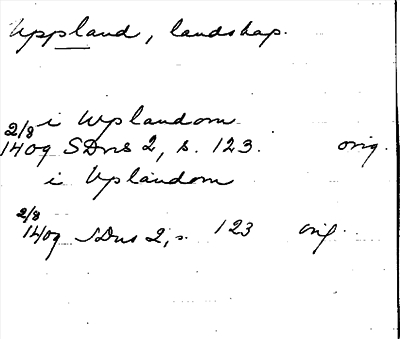 Uppland, landskap.
i Uplandom
2/8
1409 SDns 2, s. 123. orig.
i Uplandom
2/8
1409 SDns 2, s. 123 orig.